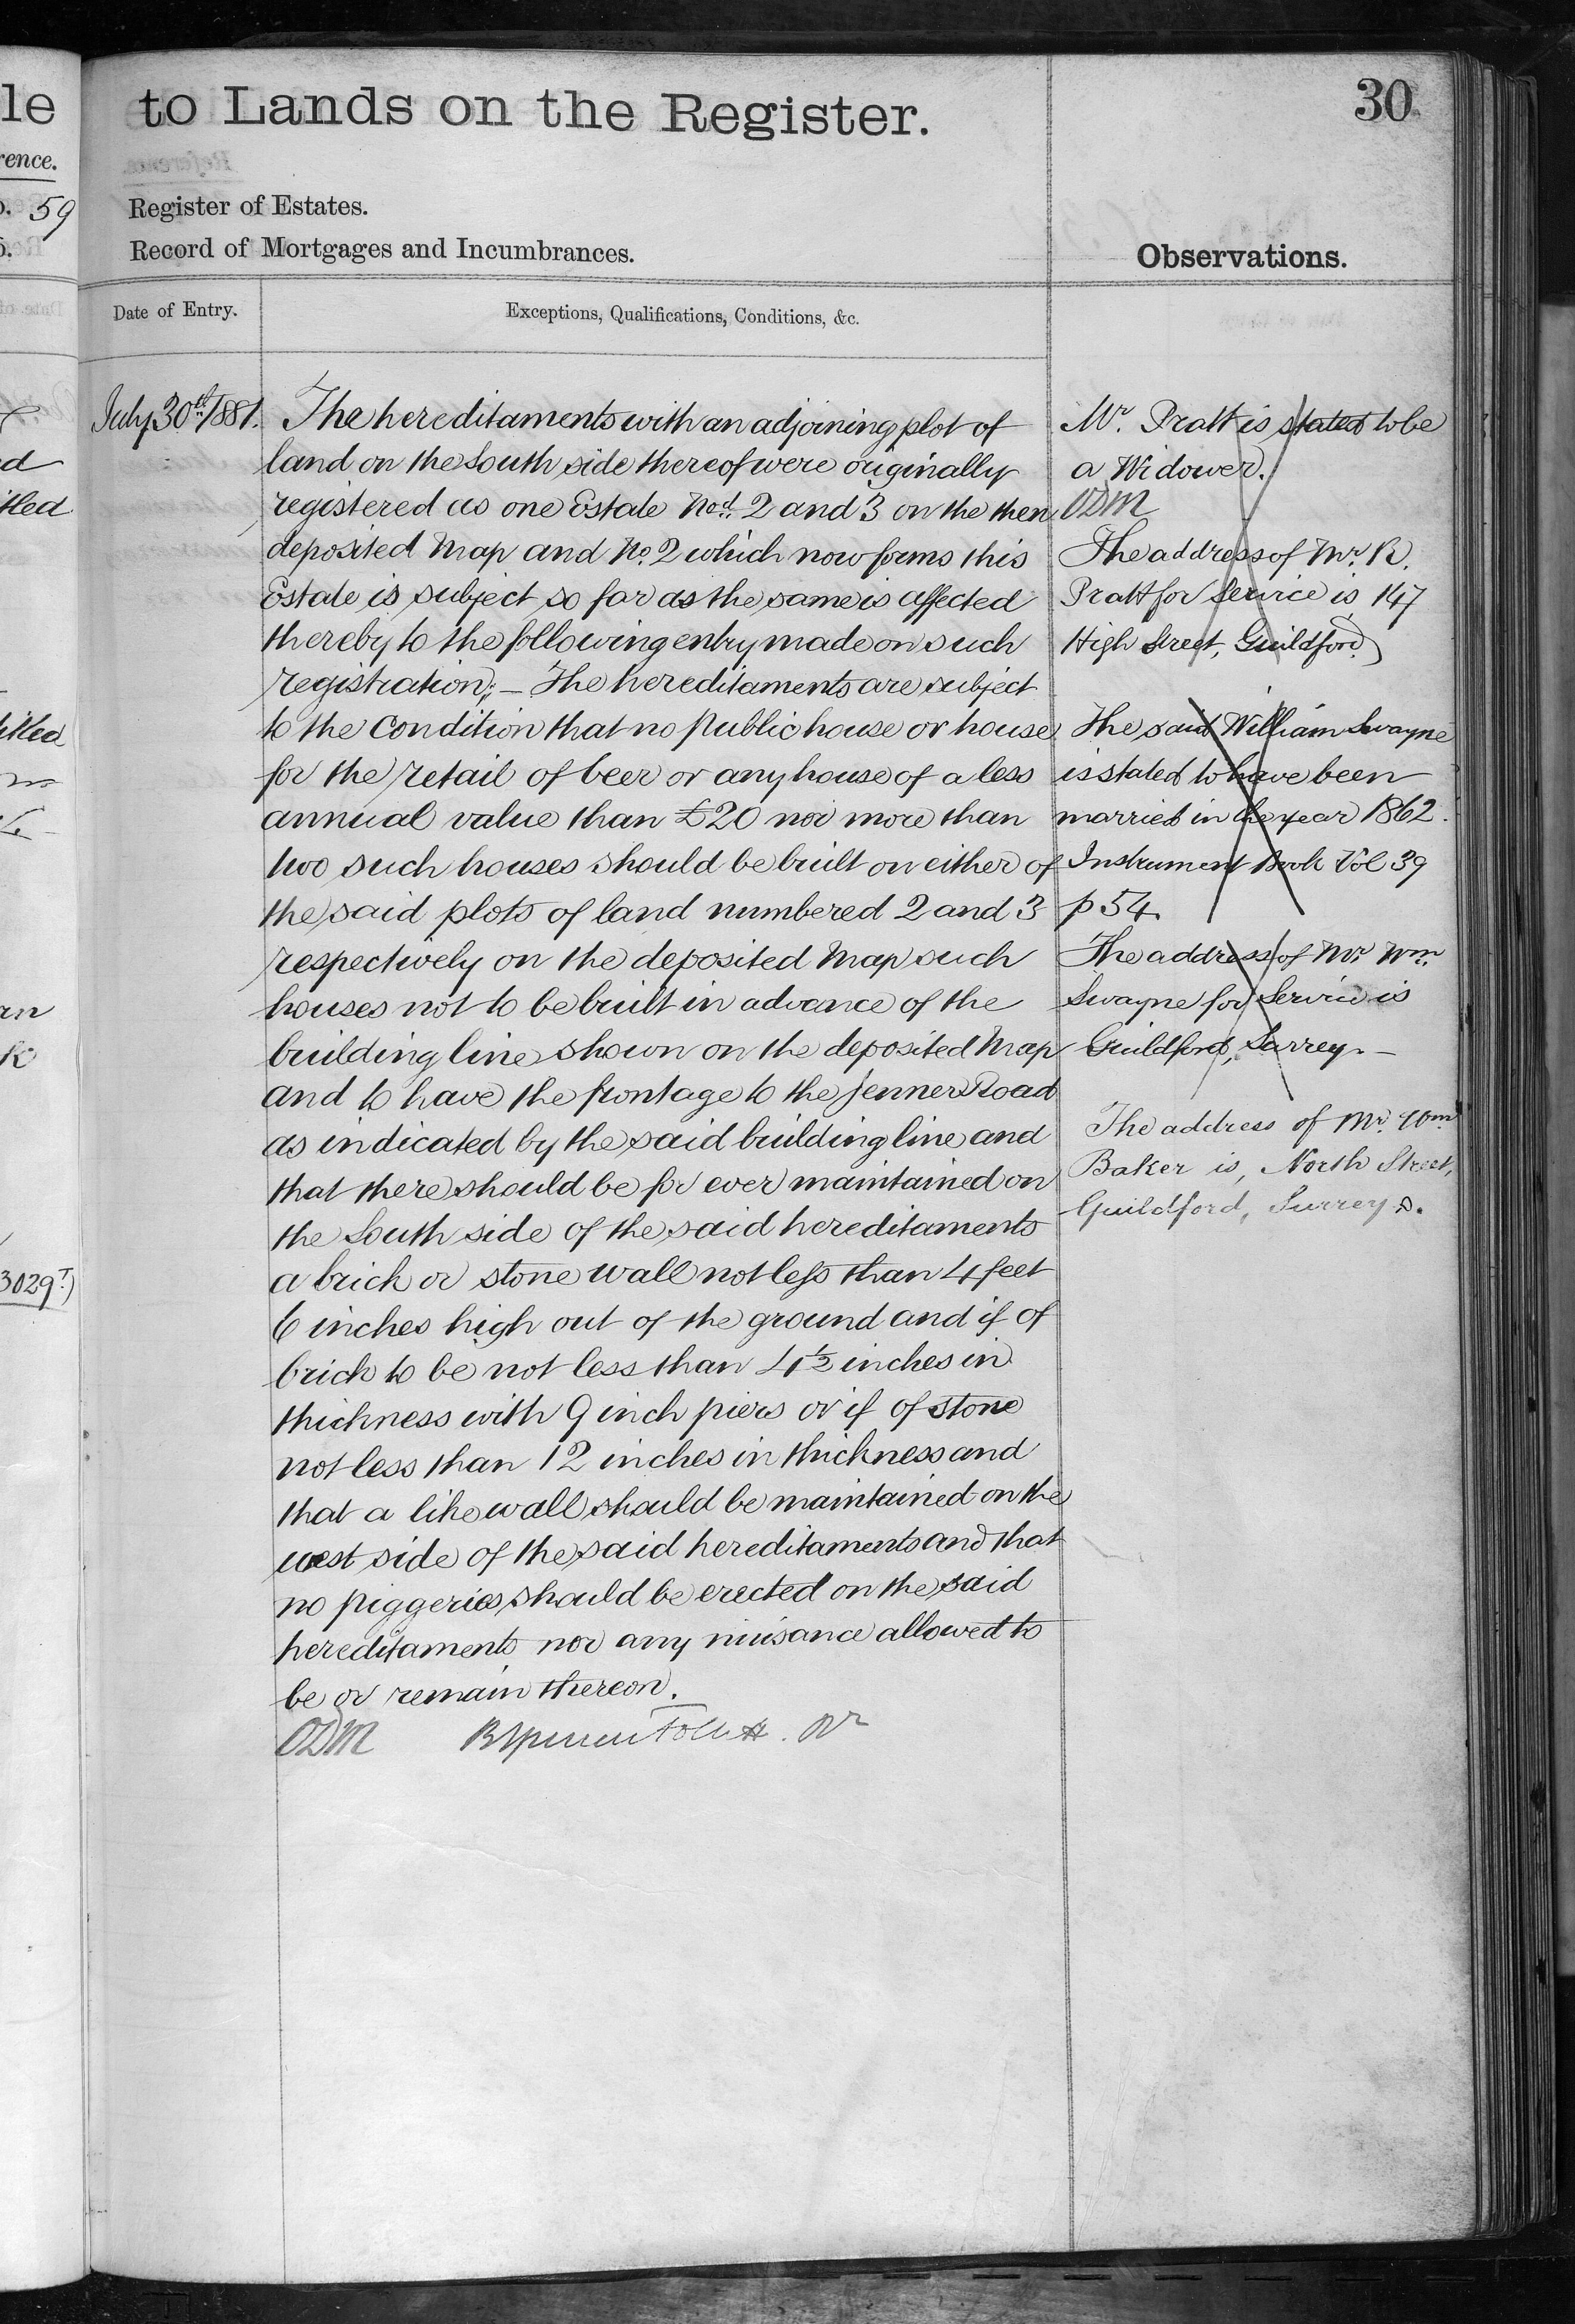 le
rence.
o. 59
o.
ed
tled
titled
an
3029T)
to Lands on the Register.
30
Register of Estates.
Record of Mortgages and Incumbrances.
Observations.
Date of Entry.
Exceptions, Qualifications, Conditions, &c.
July 30th 1881.
The hereditaments with an adjoining plot of
land on the South side thereof were originally
registered as one Estate Nod. 2 and 3 on the then
deposited Map and No. 2 which now forms this
Estate is subject so far as the same is affected
thereby to the following entry made on such
registration; – The hereditaments are subject
to the Condition that no public house or house
for the retail of beer or any house of a less
annual value than £20 nor more than
two such houses should be built on either of
the said plots of land numbered 2 and 3
respectively on the deposited Map such
houses not to be built in advance of the
building line shown on the deposited Map
and to have the frontage to the Jenner Road
as indicated by the said building line and
that there should be for ever maintained on
the South side of the said hereditaments
a brick or stone wall not less than 4 feet
6 inches high out of the ground and if of
brick to be not less than 4½ inches in
thickness with 9 inch piers or if of stone
not less than 12 inches in thickness and
that a like wall should be maintained on the
west side of the said hereditaments and that
no piggeries should be erected on the said
hereditaments nor any nuisance allowed to
be or remain thereon.
ODM
Mr. Pratt is stated to be
a Widower.
ODM
The address of Mr. R.
Pratt for Service is 147
High Street, Guildford.
The said William Swayne
is stated to have been
married in the year 1862.
Instrument Book Vol 39
p 54.
The address of Mr Wm.
Swayne for Service is
Guildford, Surrey. –
The address of Mr. Wm
Baker is, North Street,
Guildford, Surrey.